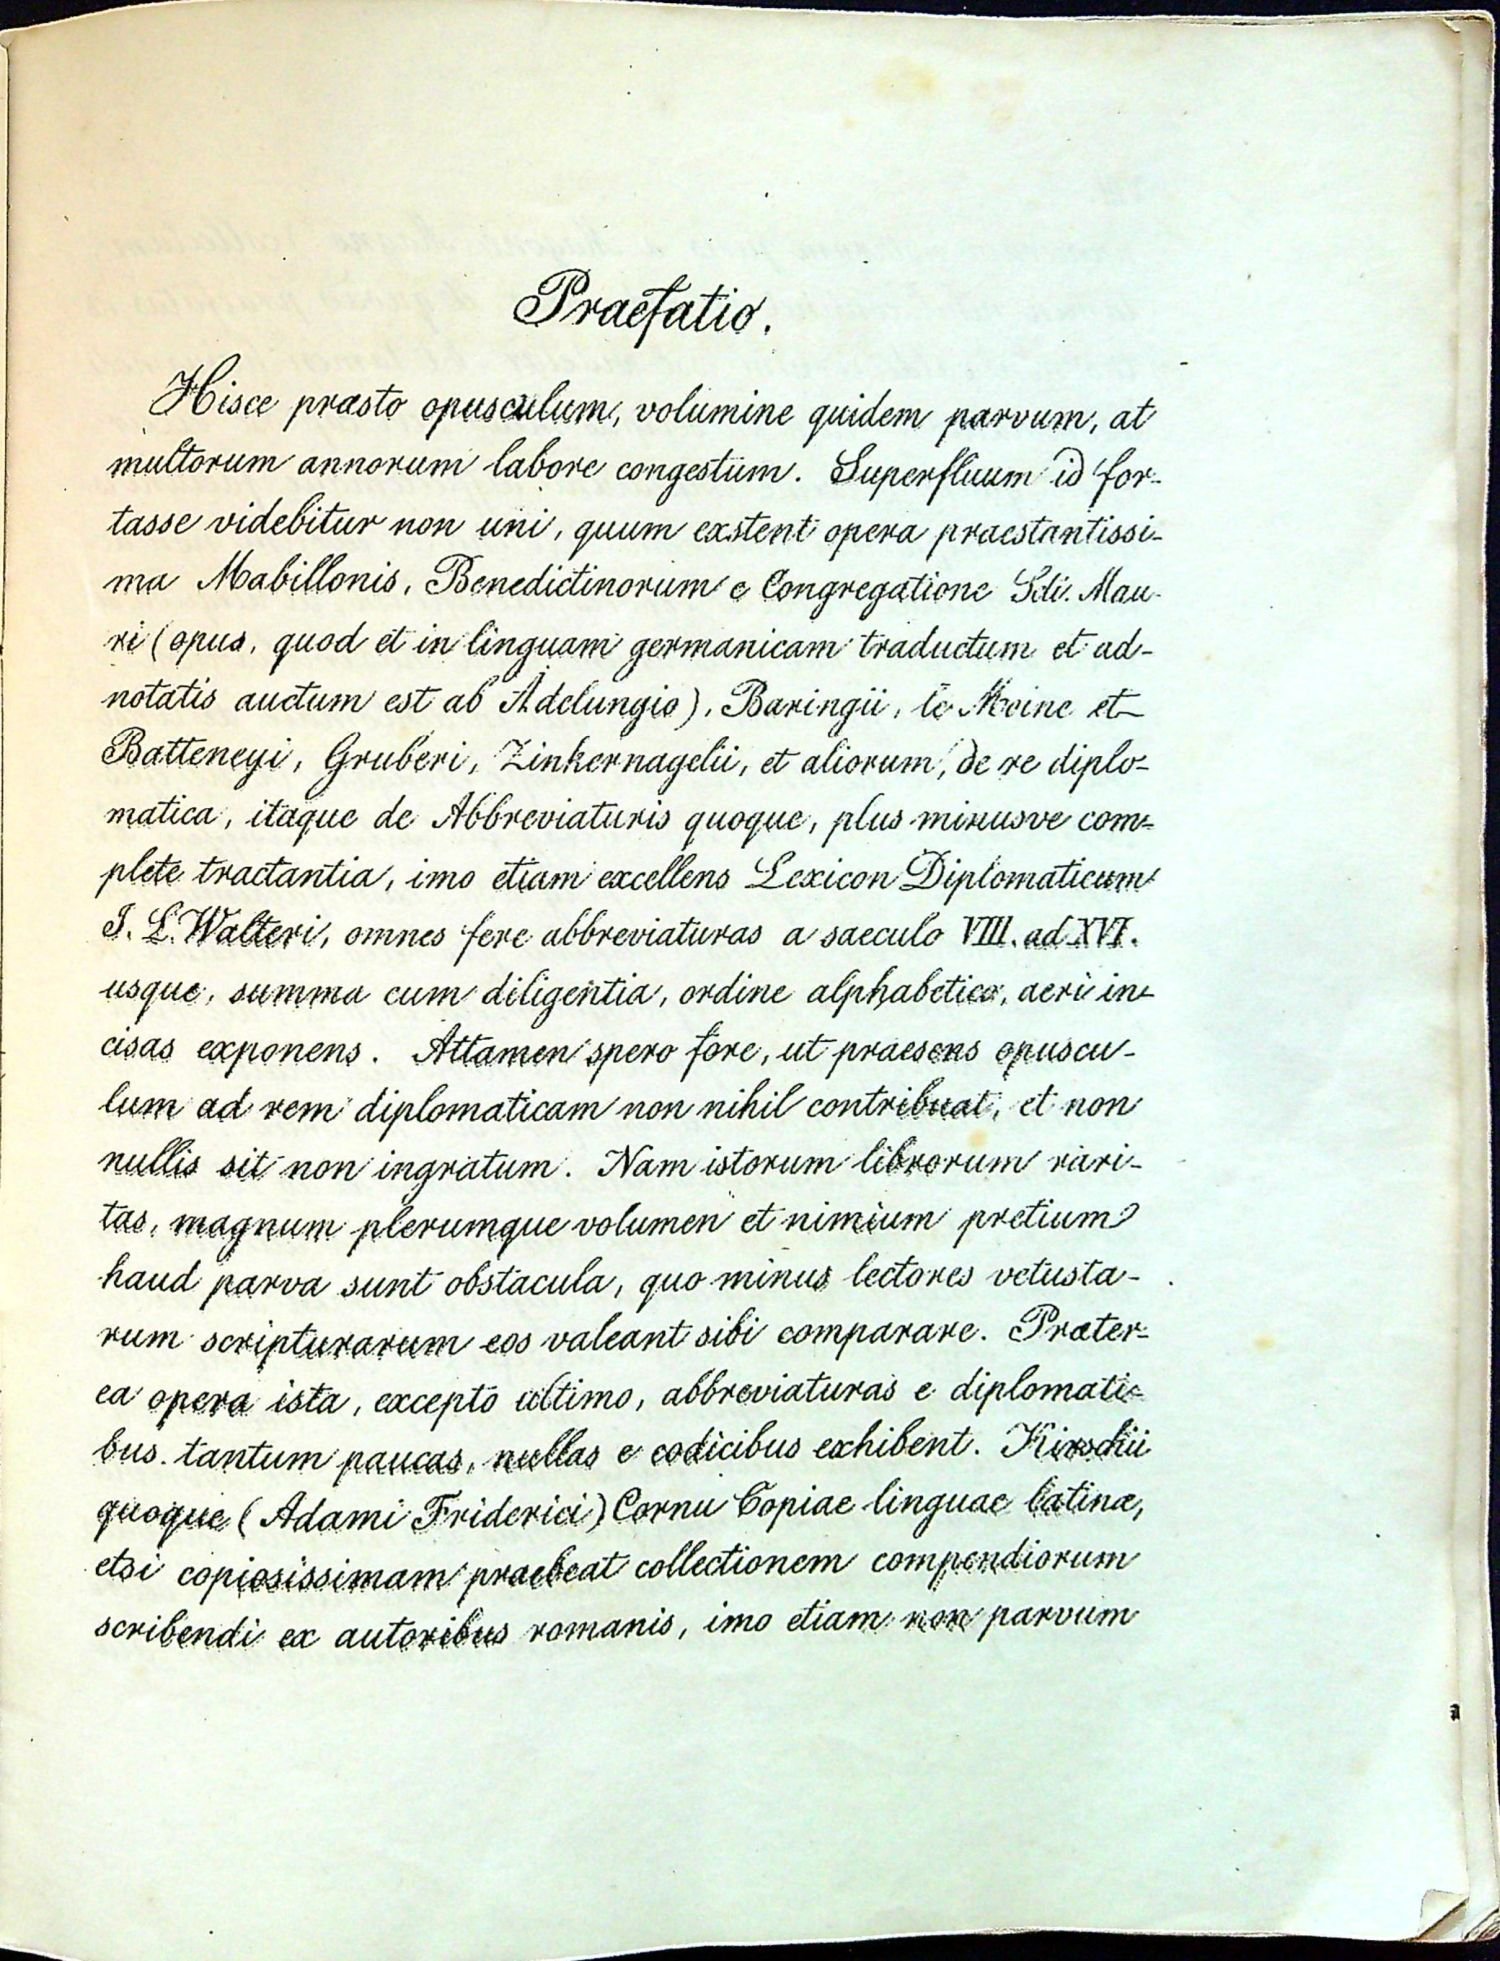 Praefatio.
Hisce præsto opusculum, volumine quidem parvum, at
multorum annorum labore congestum. Superfluum id for-
tasse videbitur non uni, quum exstent opera praestantissi-
ma Mabillonis, Benedictinorum e Congregatione Sti. Mau-
ri (opus, quod et in linguam germanicam traductum et ad-
notatis auctum est ab Adelungio), Baringii, le Moine et
Batteneyi, Gruberi, Zinkernagelii, et aliorum, de re diplo-
matica, itaque de Abbreviaturis quoque, plus minusve com-
plete tractantia, imo etiam excellens Lexicon Diplomaticum
J. L. Walteri, omnes fere abbreviaturas a saeculo VIII. ad XVI.
usque, summa cum diligentia, ordine alphabetico, aeri in-
cisas exponens. Attamen spero fore, ut praesens opuscu-
lum ad rem diplomaticam non nihil contribuat, et non
nullis sit non ingratum. Nam istorum librorum rari-
tas, magnum plerumque volumen et nimium pretium
haud parva sunt obstacula, quo minus lectores vetusta-
rum scripturarum eos valeant sibi comparare. Præter-
ea opera ista, excepto ultimo, abbreviaturas e diplomati-
bus tantum paucas, nullas e codicibus exhibent. Kirschii
quoque (Adami Friderici) Cornu Copiae linguae latinæ,
etsi copiosissimam praebeat collectionem compendiorum
scribendi ex autoribus romanis, imo etiam non parvum